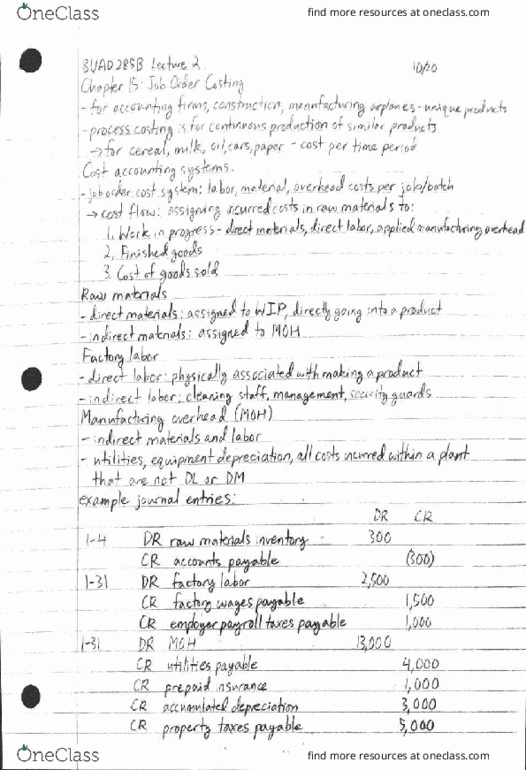 OneClass
find more resources at oneclass.com
BUAD285B Lecture 2 10/20
Chapter 15: Job Order Costing
- for accounting firms, construction, manufacturing airplanes - unique products
- process costing is for continuous production of similar products
→ for cereal, milk, oil, cars, paper - cost per time period
Cost accounting systems.
- job order cost system: labor, material, overhead costs per job/batch
→ cost flow: assigning incurred costs in raw materials to:
1. Work in progress - direct materials, direct labor, applied manufacturing overhead
2. Finished goods
3. Cost of goods sold
Raw materials
- direct materials: assigned to WIP, directly going into a product
- indirect materials: assigned to MOH
Factory labor
- direct labor: physically associated with making a product
- indirect labor: cleaning staff, management, security guards
Manufacturing overhead (MOH)
- indirect materials and labor
- utilities, equipment depreciation, all costs incurred within a plant
that are not DL or DM
example journal entries:
DR CR
1-4 DR raw materials inventory 300
CR accounts payable (300)
1-31 DR factory labor 2,500
CR factory wages payable 1,500
CR employer payroll taxes payable 1,000
1-31 DR MOH 13,000
CR utilities payable 4,000
CR prepaid insurance 1,000
CR accumulated depreciation 3,000
CR property taxes payable 5,000
OneClass
find more resources at oneclass.com